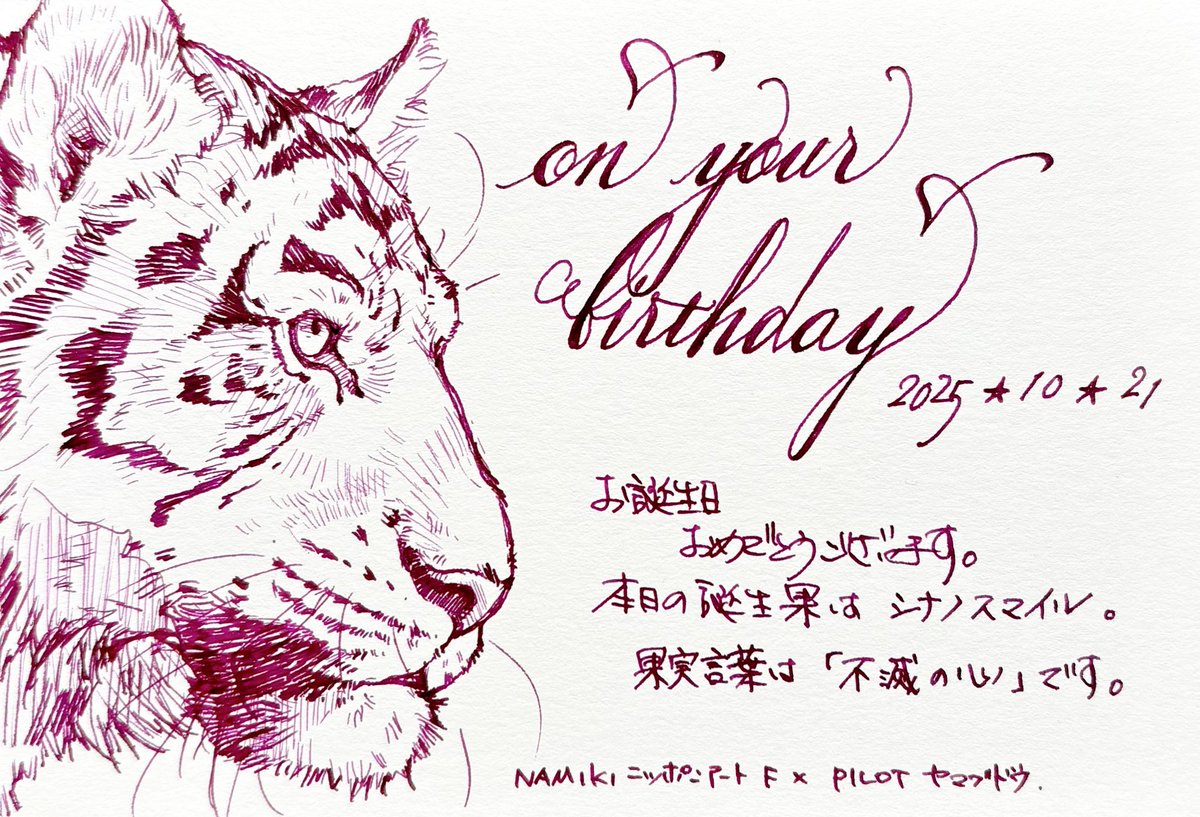 on your
birthday
2025★10★21
お誕生日
おめでとうございます。
本日の誕生果は シナノスマイル。
果実言葉は「不滅の心」です。
NAMIKI ニッポンアート F × PILOT ヤマブドウ.